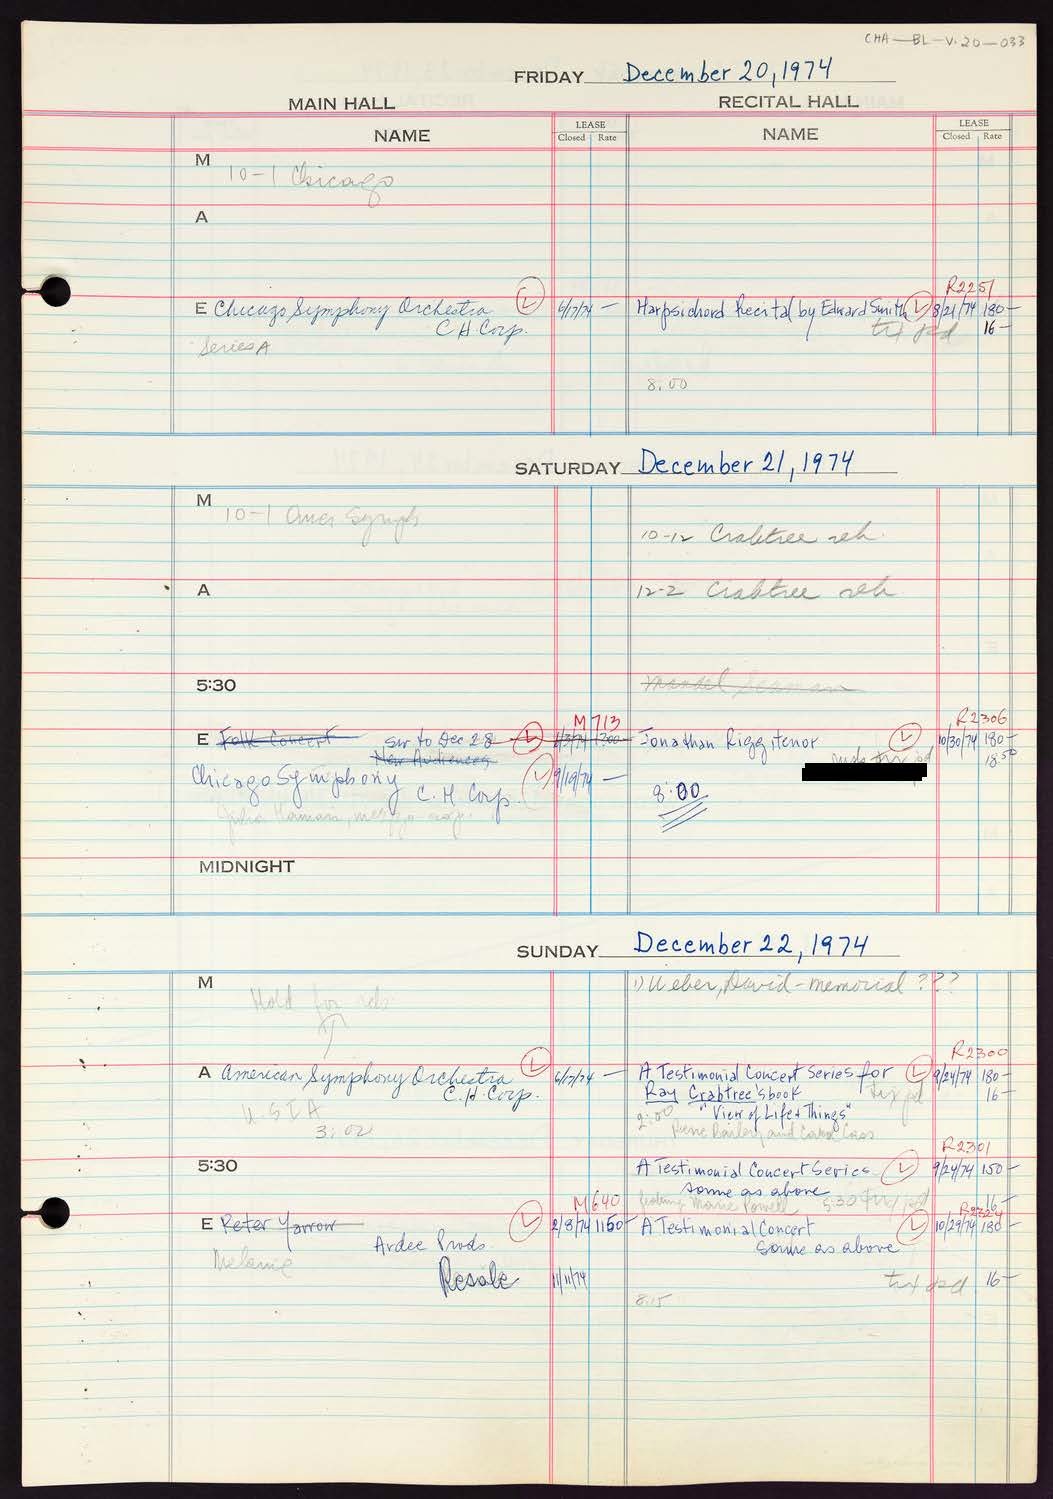 CHA-BL-V.20-033
FRIDAY December 20, 1974
MAIN HALL RECITAL HALL
NAME LEASE Closed Rate NAME LEASE Closed Rate
M 10-1 Chicago
A
R2251
E Chicago Symphony Orchestra L 6/17/74 — Harpsichord Recital by Edward Smith L 8/21/74 180—
C H Corp. txt pd 16—
Series A
8:00
SATURDAY December 21, 1974
M
10-1 Amer Symph
10-12 Crabtree reh.
A 12-2 Crabtree reh
5:30 Mandel
M713 R2306
E Folk Concert sw to Dec 28 L Jonathan Rigg, tenor L 10/30/74 180—
New Audiences 18 50
Chicago Symphony L 9/19/74 —
C. H. Corp. 8:00
MIDNIGHT
SUNDAY December 22, 1974
M 1) Weber, David - memorial ???
Hold for reh
R2300
A American Symphony Orchestra L 6/17/74 — A Testimonial Concert Series for L 9/24/74 180—
C.H. Corp. Ray Crabtree's book 16—
U.S.I.A 2:00 "View of Life & Things"
3:02
R2301
5:30 A Testimonial Concert Series L 9/24/74 150—
same as above
Marie Powell 5:30 16—
M640 R2324
E Peter Yarrow L 2/8/74 1150— A Testimonial Concert L 10/29/74 180—
Ardee Prods. same as above
Melanie
Resale 11/11/74 txt pd 16—
8:15